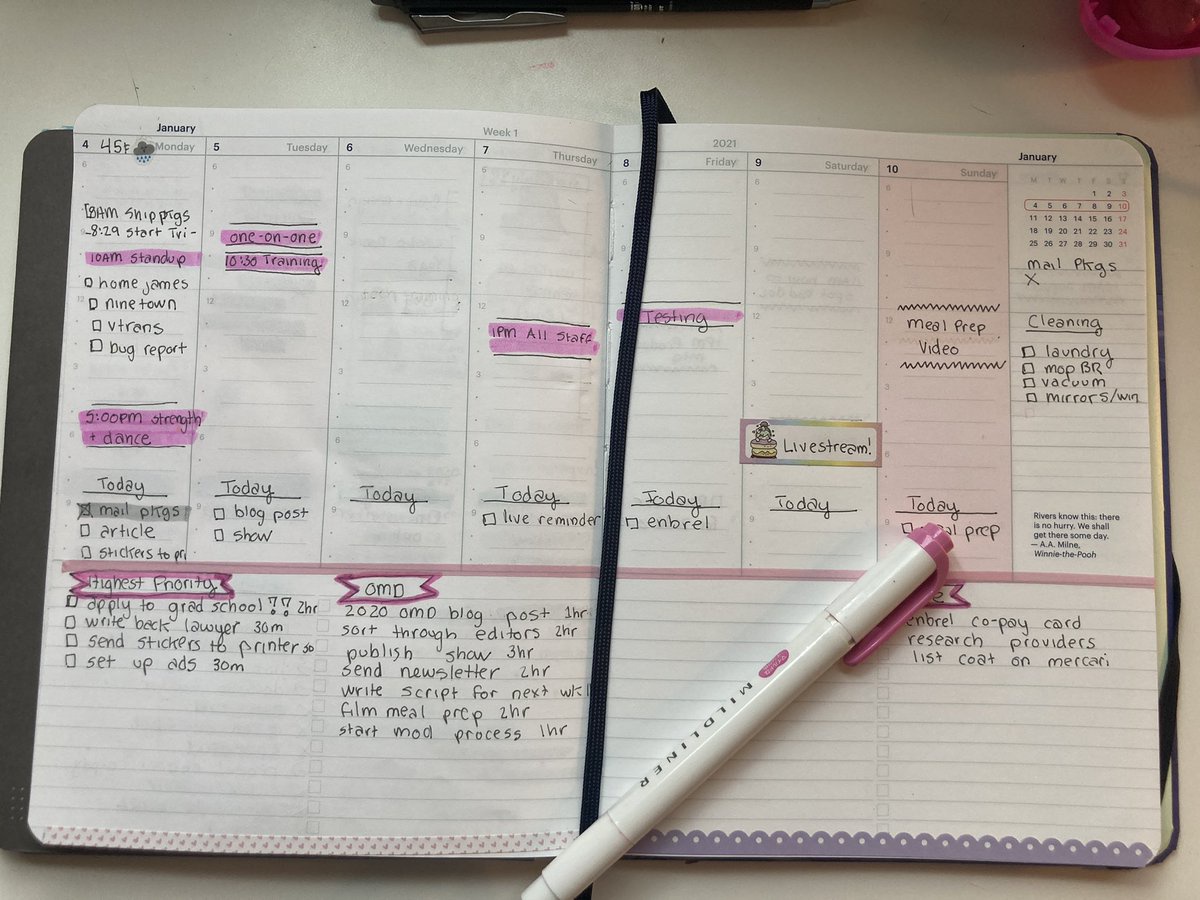 January
Week 1
2021
January
4 45F Monday
8AM Ship pkgs
8:29 start Tri-
10AM Standup
home james
ninetown
vtrans
bug report
5:00PM strength
+ dance
Today
mail pkgs
article
stickers to pri
5 Tuesday
one-on-one
10:30 Training
Today
blog post
show
6 Wednesday
Today
7 Thursday
1PM All Staff
Today
live reminder
8 Friday
Testing
Today
enbrel
9 Saturday
Livestream!
Today
10 Sunday
meal Prep
Video
Today
prep
M T W T F S S
1 2 3
4 5 6 7 8 9 10
11 12 13 14 15 16 17
18 19 20 21 22 23 24
25 26 27 28 29 30 31
mail Pkgs
X
Cleaning
laundry
mop BR
vacuum
mirrors/win
Rivers know this: there
is no hurry. We shall
get there some day.
— A.A. Milne,
Winnie-the-Pooh
Highest Priority
apply to grad school?? 2hr
write back lawyer 30m
send stickers to printer 30
set up ads 30m
OMD
2020 OMD blog post 1hr
sort through editors 2hr
publish show 3hr
send newsletter 2hr
write script for next wk 1
film meal prep 2hr
start mod process 1hr
enbrel co-pay card
research providers
list coat on mercari
MILDLINER
ZEBRA